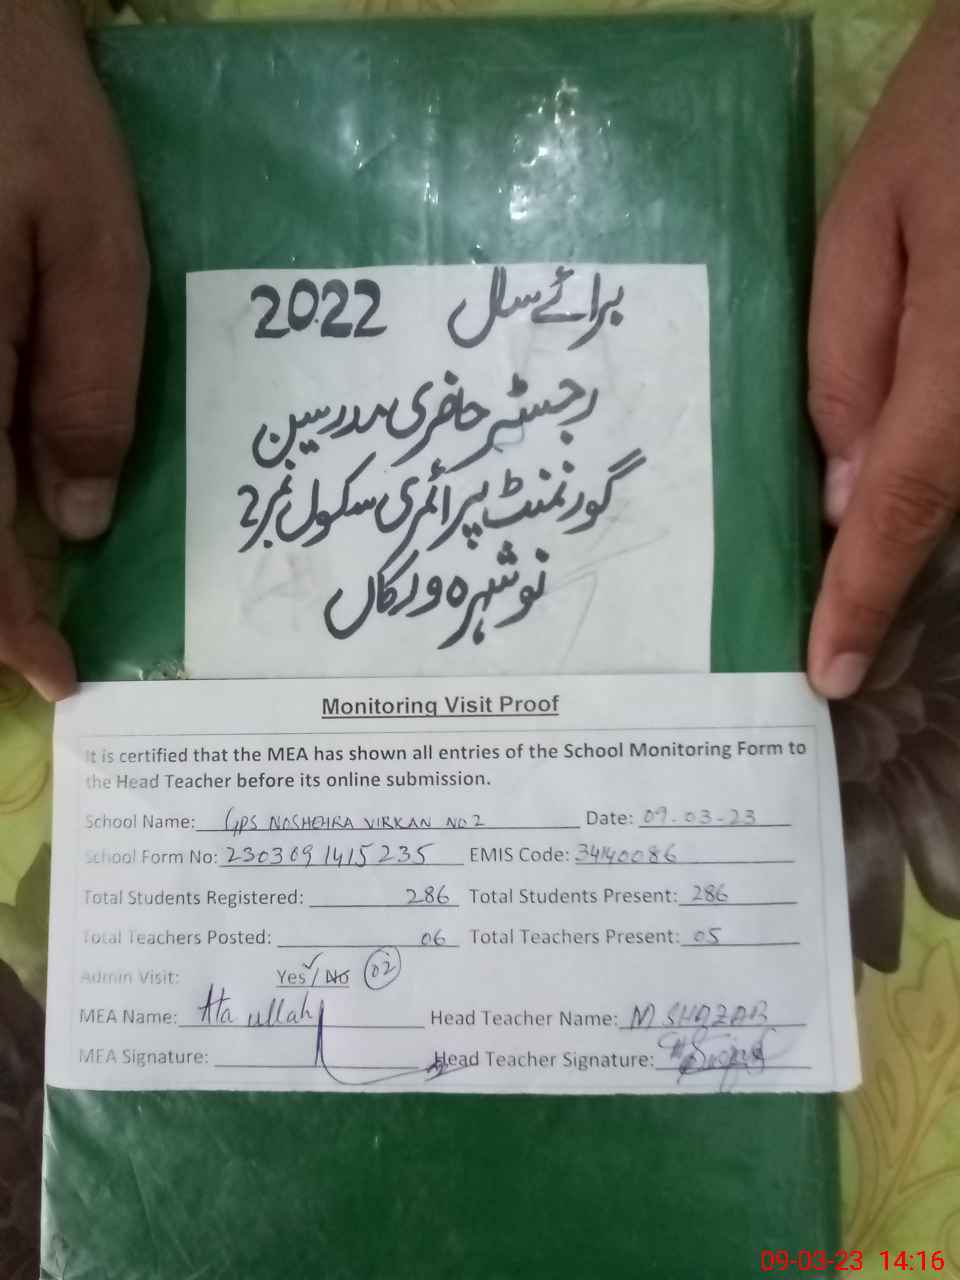 برائے سال 2022
رجسٹر حاضری مدرسین
گورنمنٹ پرائمری سکول نمبر 2
نوشہرہ ورکاں
Monitoring Visit Proof
It is certified that the MEA has shown all entries of the School Monitoring Form to
the Head Teacher before its online submission.
School Name: GPS NOSHEHRA VIRKAN NO 2 Date: 09-03-23
School Form No: 2303091415235 EMIS Code: 34140086
Total Students Registered: 286 Total Students Present: 286
Total Teachers Posted: 06 Total Teachers Present: 05
Admin Visit: Yes / No 02
MEA Name: Ata ullah Head Teacher Name: M SHAZAB
MEA Signature: Head Teacher Signature:
09-03-23 14:16